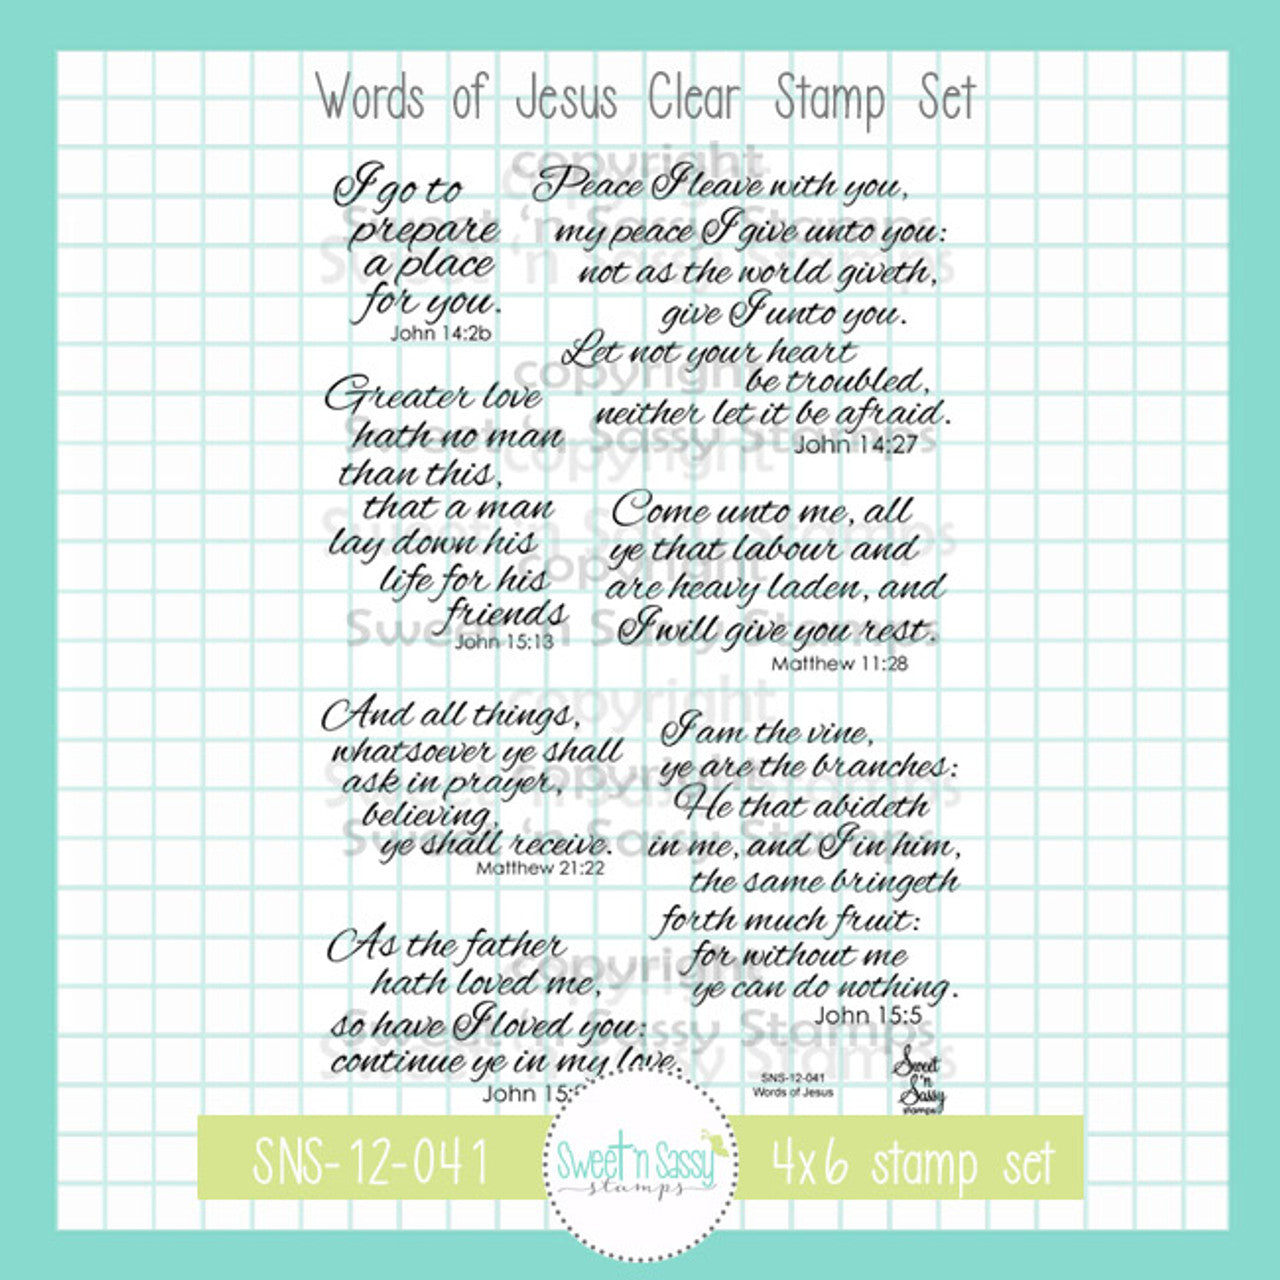 Words of Jesus Clear Stamp Set
I go to
prepare
a place
for you.
John 14:2b
Peace I leave with you,
my peace I give unto you:
not as the world giveth,
give I unto you.
Let not your heart
be troubled,
neither let it be afraid.
John 14:27
Greater love
hath no man
than this,
that a man
lay down his
life for his
friends
John 15:13
Come unto me, all
ye that labour and
are heavy laden, and
I will give you rest.
Matthew 11:28
And all things,
whatsoever ye shall
ask in prayer,
believing,
ye shall receive.
Matthew 21:22
I am the vine,
ye are the branches:
He that abideth
in me, and I in him,
the same bringeth
forth much fruit:
for without me
ye can do nothing.
John 15:5
As the father
hath loved me,
so have I loved you:
continue ye in my love.
John
SNS-12-041
Words of Jesus
Sweet
'n
Sassy
stamps
SNS-12-041
Sweet 'n Sassy
stamps
4x6 stamp set
copyright
Sweet 'n Sassy Stamps
copyright
Sweet 'n Sassy Stamps
copyright
Sweet 'n Sassy Stamps
copyright
Sweet 'n Sassy Stamps
copyright
Sweet 'n Sassy Stamps